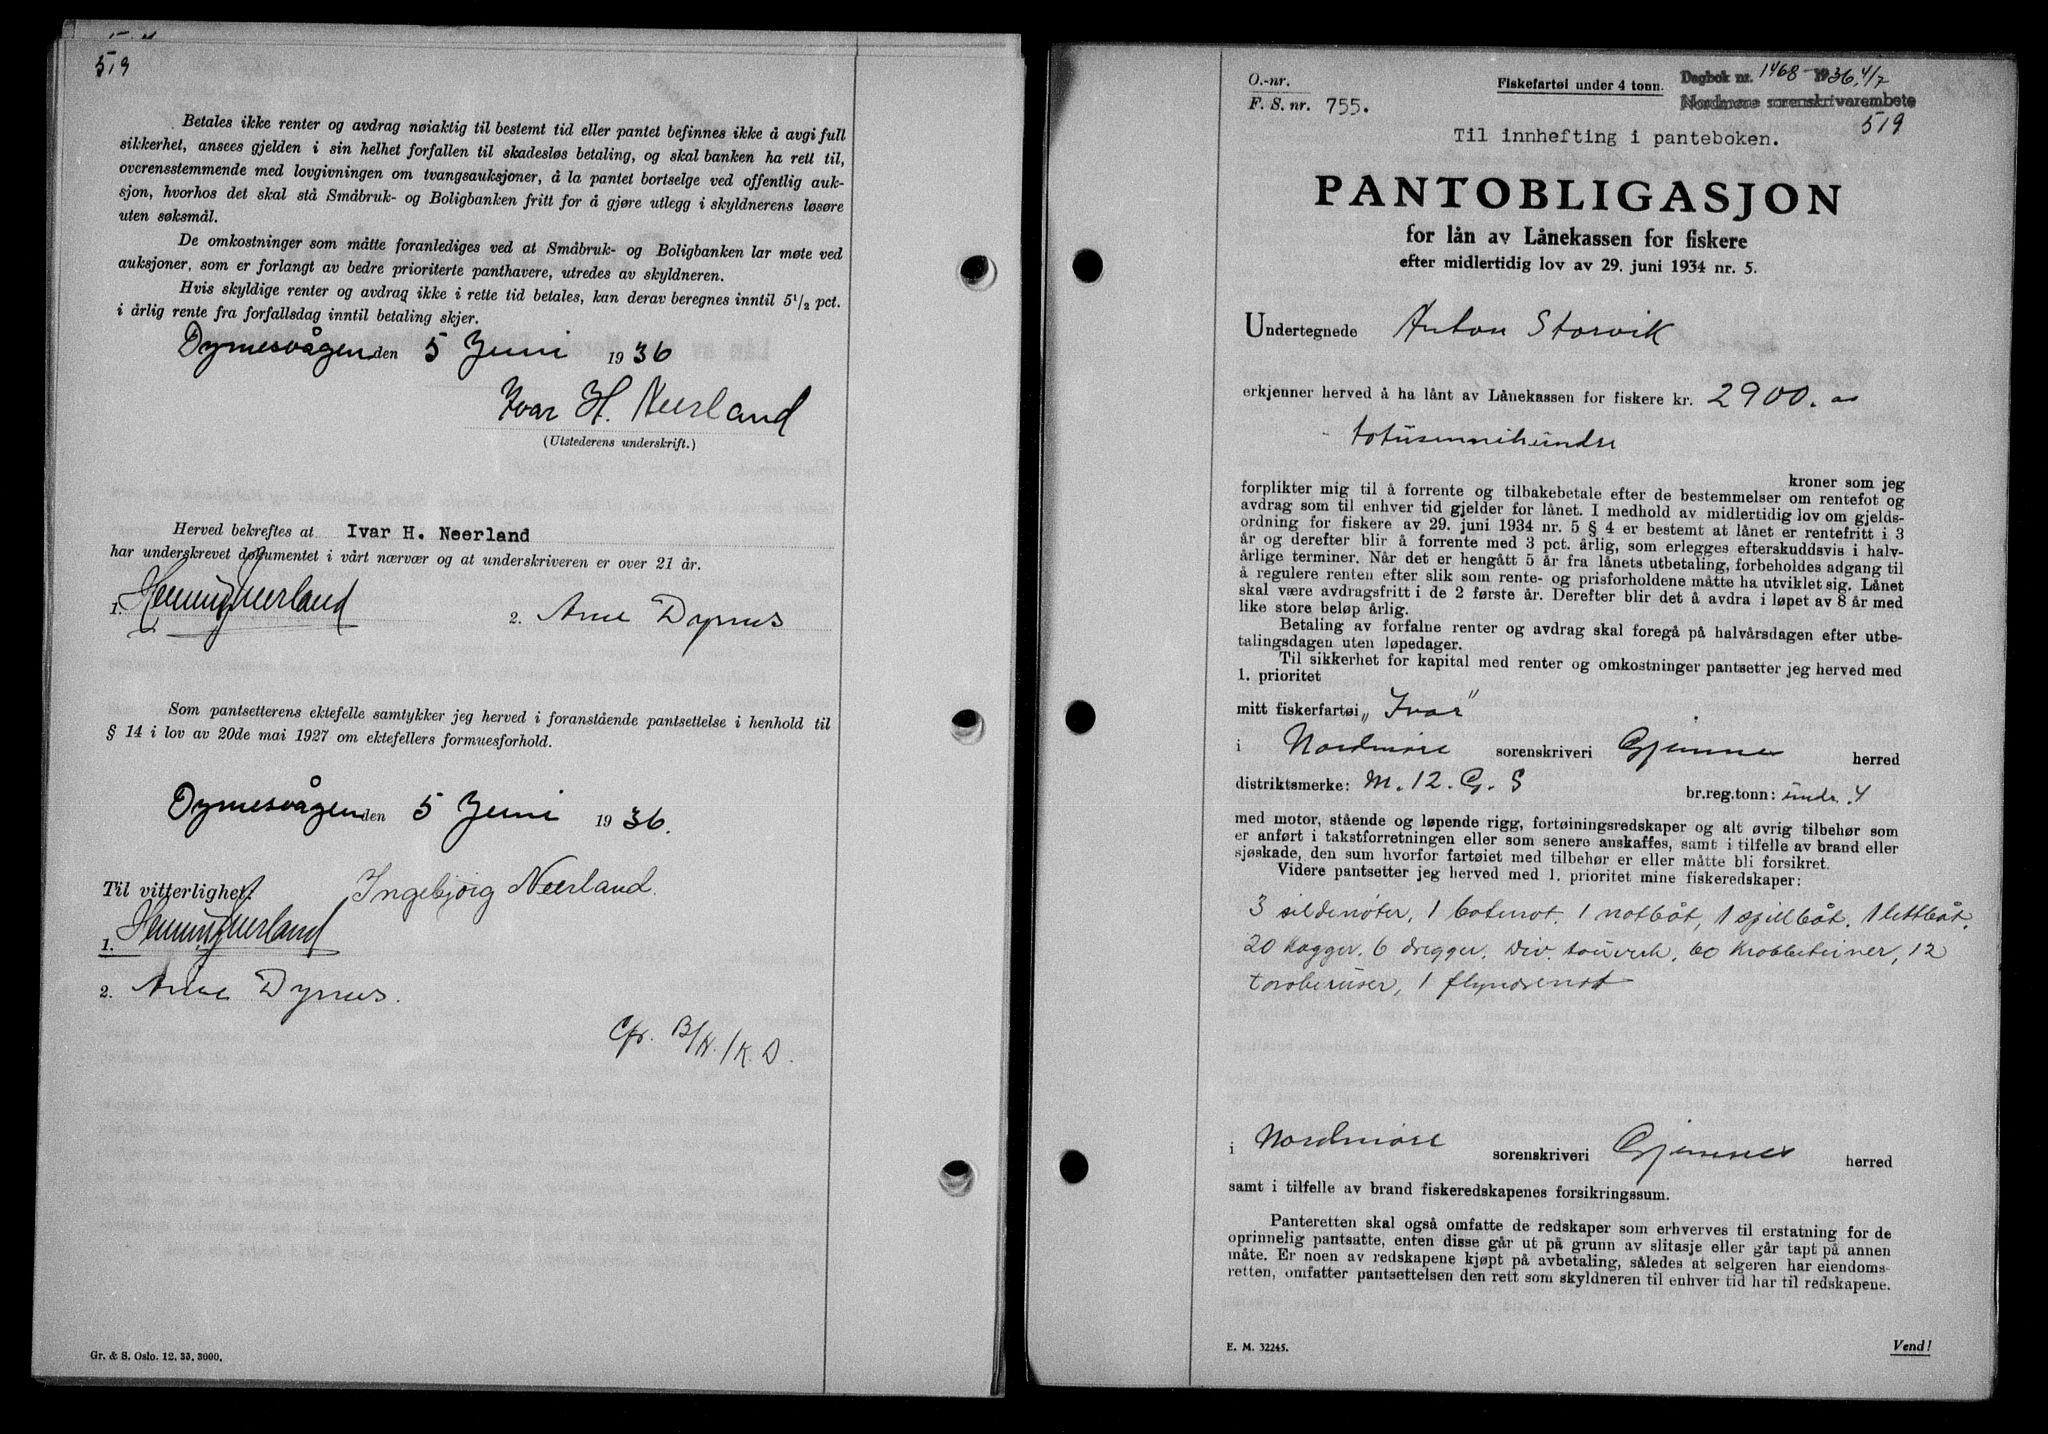 519
Betales ikke renter og avdrag nøiaktig til bestemt tid eller pantet befinnes ikke å avgi full
sikkerhet, ansees gjelden i sin helhet forfallen til skadesløs betaling, og skal banken ha rett til,
overensstemmende med lovgivningen om tvangsauksjoner, å la pantet bortselge ved offentlig auk-
sjon, hvorhos det skal stå Småbruk- og Boligbanken fritt for å gjøre utlegg i skyldnerens løsøre
uten søksmål.
De omkostninger som måtte foranlediges ved at Småbruk- og Boligbanken lar møte ved
auksjoner, som er forlangt av bedre prioriterte panthavere, utredes av skyldneren.
Hvis skyldige renter og avdrag ikke i rette tid betales, kan derav beregnes inntil 5½ pct.
i årlig rente fra forfallsdag inntil betaling skjer.
Dymesvågen den 5 Juni 1936
Ivar H. Neerland
(Utstederens underskrift.)
Herved bekreftes at Ivar H. Neerland
har underskrevet dokumentet i vårt nærvær og at underskriveren er over 21 år.
1. Henning Neerland 2. Arne Dyrnes
Som pantsetterens ektefelle samtykker jeg herved i foranstående pantsettelse i henhold til
§ 14 i lov av 20de mai 1927 om ektefellers formuesforhold.
Dymesvågen den 5 Juni 1936.
Ingebjørg Neerland.
Til vitterlighet
1. Henning Neerland
2. Arne Dyrnes.
Cfr. B/N. / K.D.
Gr. & S. Oslo. 12. 35. 3000.
O.-nr.
F. S. nr. 755.
Fiskefartøi under 4 tonn.
Dagbok nr. 1468 1936 4/7
Nordmøre sorenskrivarembete
519
Til innhefting i panteboken.
PANTOBLIGASJON
for lån av Lånekassen for fiskere
efter midlertidig lov av 29. juni 1934 nr. 5.
Undertegnede Anton Storvik
erkjenner herved å ha lånt av Lånekassen for fiskere kr. 2900.00
totusennihundre
kroner som jeg
forplikter mig til å forrente og tilbakebetale efter de bestemmelser om rentefot og
avdrag som til enhver tid gjelder for lånet. I medhold av midlertidig lov om gjelds-
ordning for fiskere av 29. juni 1934 nr. 5 § 4 er bestemt at lånet er rentefritt i 3
år og derefter blir å forrente med 3 pct. årlig, som erlegges efterskuddsvis i halv-
årlige terminer. Når det er hengått 5 år fra lånets utbetaling, forbeholdes adgang til
å regulere renten efter slik som rente- og prisforholdene måtte ha utviklet sig. Lånet
skal være avdragsfritt i de 2 første år. Derefter blir det å avdra i løpet av 8 år med
like store beløp årlig.
Betaling av forfalne renter og avdrag skal foregå på halvårsdagen efter utbe-
talingsdagen uten løpedager.
Til sikkerhet for kapital med renter og omkostninger pantsetter jeg herved med
1. prioritet
mitt fiskerfartøi „Ivar"
i Nordmøre sorenskriveri Gjemnes herred
distriktsmerke: M. 12. G. S br.reg.tonn: undr 4
med motor, stående og løpende rigg, fortøiningsredskaper og alt øvrig tilbehør som
er anført i takstforretningen eller som senere anskaffes, samt i tilfelle av brand eller
sjøskade, den sum hvorfor fartøiet med tilbehør er eller måtte bli forsikret.
Videre pantsetter jeg herved med 1. prioritet mine fiskeredskaper:
3 sildenøter, 1 botnot. 1 notbåt, 1 spillbåt. 1 lettbåt.
20 kagger. 6 dregger. Div. tauverk, 60 krabbeteiner, 12
torskeruser, 1 flyndrenot
i Nordmøre sorenskriveri Gjemnes herred
samt i tilfelle av brand fiskeredskapenes forsikringssum.
Panteretten skal også omfatte de redskaper som erhverves til erstatning for de
oprinnelig pantsatte, enten disse går ut på grunn av slitasje eller går tapt på annen
måte. Er noen av redskapene kjøpt på avbetaling, således at selgeren har eiendoms-
retten, omfatter pantsettelsen den rett som skyldneren til enhver tid har til redskapene.
E. M. 32245.
Vend!